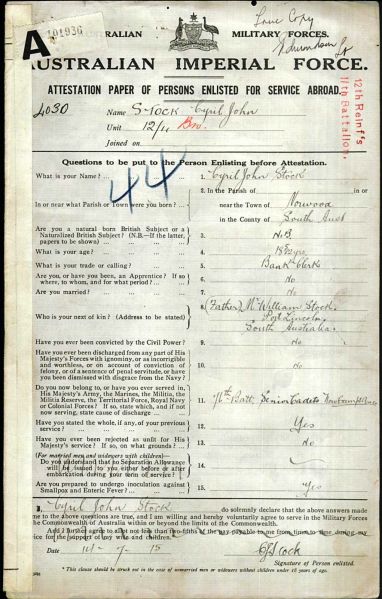 True Copy
A
101936
AUSTRALIAN MILITARY FORCES.
AUSTRALIAN IMPERIAL FORCE.
ATTESTATION PAPER OF PERSONS ENLISTED FOR SERVICE ABROAD.
4030
Name STOCK Cyril John
Unit 12/11 Bn.
Joined on
12th Reinf's
11th Battalion.
Questions to be put to the Person Enlisting before Attestation.
44
What is your Name? 1. Cyril John Stock
In or near what Parish or Town were you born? 2. In the Parish of in or
near the Town of Norwood
in the County of South Aust
Are you a natural born British Subject or a
Naturalized British Subject? (N.B.—If the latter,
papers to be shown) 3. N.B
What is your age? 4.
What is your trade or calling? 5. Bank Clerk
Are you, or have you been, an Apprentice? If so
where, to whom, and for what period? 6. No
Are you married? 7. No
Who is your next of kin? (Address to be stated) 8. (Father) Mr William Stock.
Port Lincoln.
South Australia.
Have you ever been convicted by the Civil Power? 9. No
Have you ever been discharged from any part of His
Majesty's Forces with ignominy, or as incorrigible
and worthless, or on account of conviction of
felony, or of a sentence of penal servitude, or have
you been dismissed with disgrace from the Navy? 10. No
Do you now belong to, or have you ever served in,
His Majesty's Army, the Marines, the Militia, the
Militia Reserve, the Territorial Force, Royal Navy
or Colonial Forces? If so, state which, and if not
now serving, state cause of discharge 11. Batt. Senior Cadets
Have you stated the whole, if any, of your previous
service? 12. Yes
Have you ever been rejected as unfit for His
Majesty's Service? If so, on what grounds? 13. No
(For married men, and widowers with children)—
Do you understand that no Separation Allowance
will be issued to you either before or after
embarkation during your term of service? 14.
Are you prepared to undergo inoculation against
Smallpox and Enteric Fever? 15. Yes
I, Cyril John Stock do solemnly declare that the above answers made
me to the above questions are true, and I am willing and hereby voluntarily agree to serve in the Military Forces
the Commonwealth of Australia within or beyond the limits of the Commonwealth.
And I further agree to allot not less than two-fifths of the pay payable to me from time to time during my
vice for the support of my wife and children.
Date 7 - 15 CJ Stock
Signature of person enlisted.
* This clause should be struck out in the case of unmarried men or widowers without children under 18 years of age.